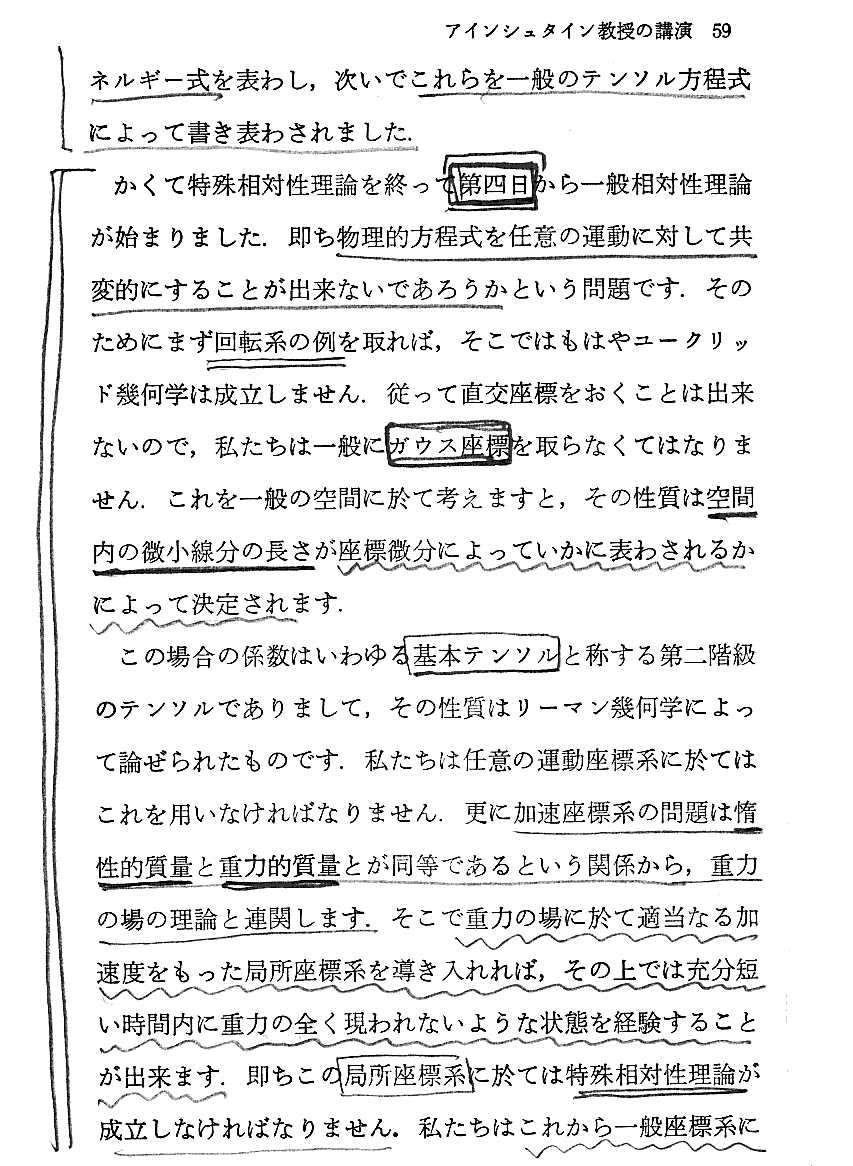 アインシュタイン教授の講演 59
ネルギー式を表わし，次いでこれらを一般のテンソル方程式
によって書き表わされました．
かくて特殊相対性理論を終って第四日から一般相対性理論
が始まりました．即ち物理的方程式を任意の運動に対して共
変的にすることが出来ないであろうかという問題です．その
ためにまず回転系の例を取れば，そこではもはやユークリッ
ド幾何学は成立しません．従って直交座標をおくことは出来
ないので，私たちは一般にガウス座標を取らなくてはなりま
せん．これを一般の空間に於て考えますと，その性質は空間
内の微小線分の長さが座標微分によっていかに表わされるか
によって決定されます．
この場合の係数はいわゆる基本テンソルと称する第二階級
のテンソルでありまして，その性質はリーマン幾何学によっ
て論ぜられたものです．私たちは任意の運動座標系に於ては
これを用いなければなりません．更に加速座標系の問題は惰
性的質量と重力的質量とが同等であるという関係から，重力
の場の理論と連関します．そこで重力の場に於て適当なる加
速度をもった局所座標系を導き入れれば，その上では充分短
い時間内に重力の全く現われないような状態を経験すること
が出来ます．即ちこの局所座標系に於ては特殊相対性理論が
成立しなければなりません．私たちはこれから一般座標系に